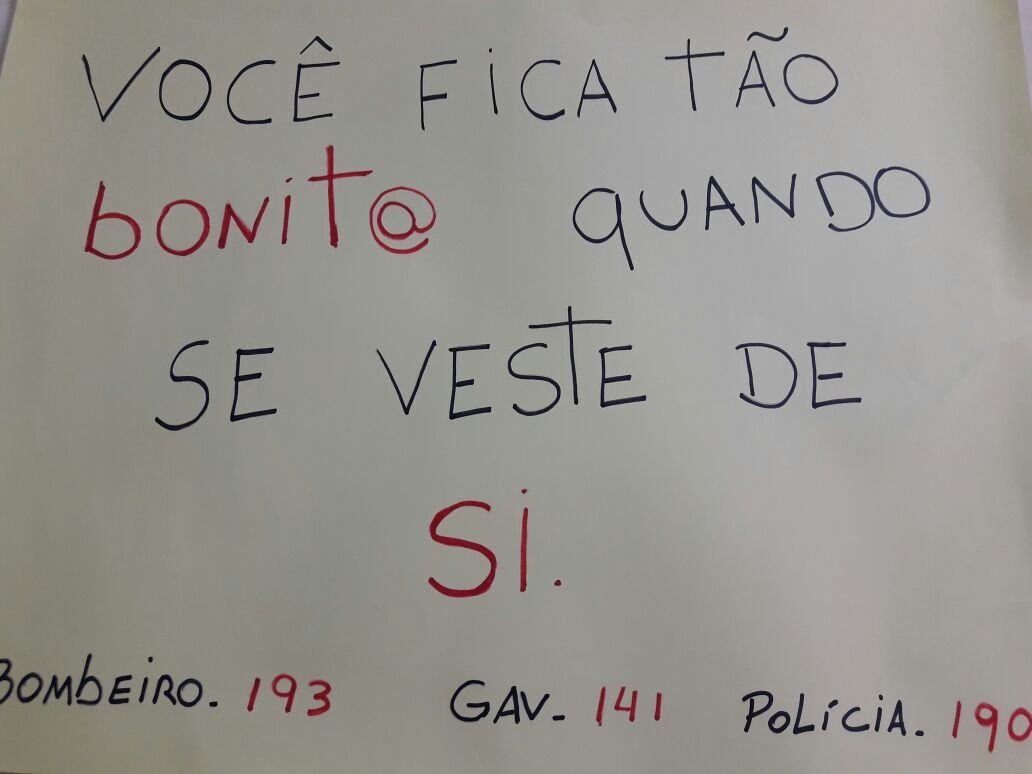 VOCÊ FICA TÃO
bONiT@ QUANDO
SE VESTE DE
Si.
BOMbEiRO. 193 GAV- 141 POLÍCiA. 190